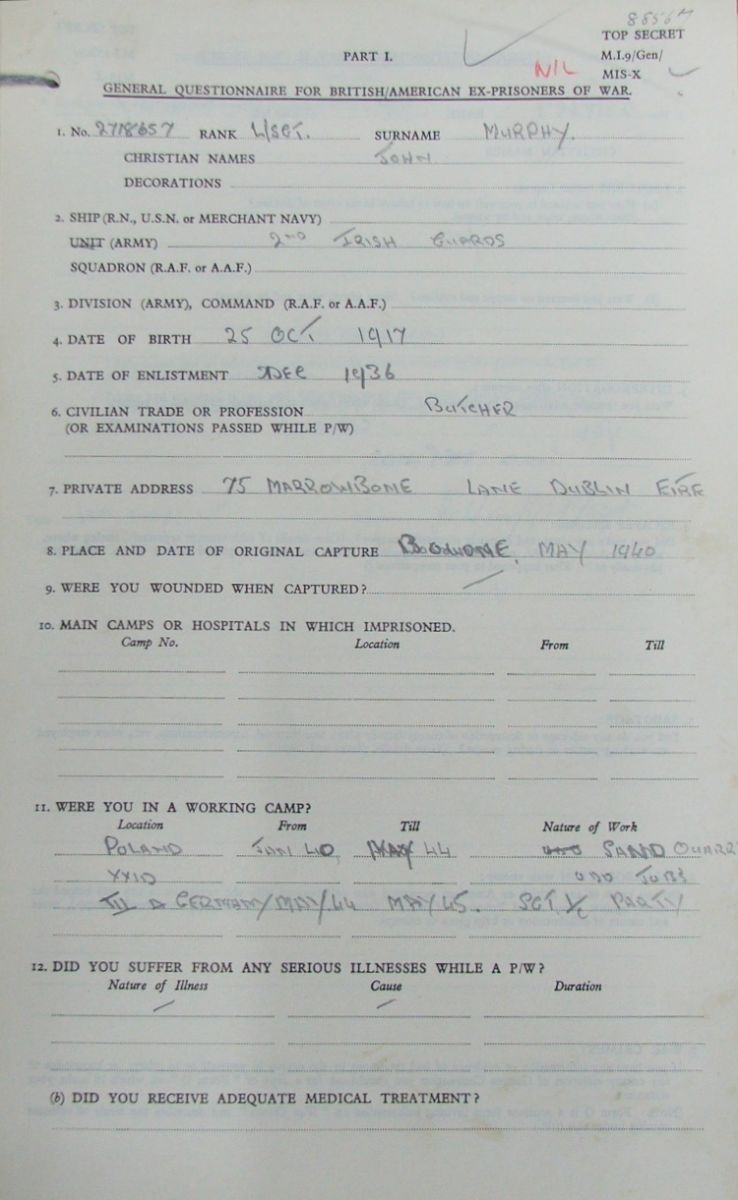 TOP SECRET
PART I.
M.I.9/Gen/
NIL
MIS-X
GENERAL QUESTIONNAIRE FOR BRITISH/AMERICAN EX-PRISONERS OF WAR.
1. No. 2718657 RANK L/SGT. SURNAME MURPHY.
CHRISTIAN NAMES JOHN
DECORATIONS
2. SHIP (R.N., U.S.N. or MERCHANT NAVY)
UNIT (ARMY) 2ND IRISH GUARDS
SQUADRON (R.A.F. or A.A.F.)
3. DIVISION (ARMY), COMMAND (R.A.F. or A.A.F.)
4. DATE OF BIRTH 25 OCT 1917
5. DATE OF ENLISTMENT DEC 1936
6. CIVILIAN TRADE OR PROFESSION BUTCHER
(OR EXAMINATIONS PASSED WHILE P/W)
7. PRIVATE ADDRESS 75 MARROWBONE LANE DUBLIN EIRE
8. PLACE AND DATE OF ORIGINAL CAPTURE MAY 1940
9. WERE YOU WOUNDED WHEN CAPTURED?
10. MAIN CAMPS OR HOSPITALS IN WHICH IMPRISONED.
Camp No. Location From Till
11. WERE YOU IN A WORKING CAMP?
Location From Till Nature of Work
POLAND JAN 40 MAY 44 SAND QUARR
XXID ODD JOBS
GERMANY MAY/44 MAY 45. SGT I/C PARTY
12. DID YOU SUFFER FROM ANY SERIOUS ILLNESSES WHILE A P/W?
Nature of Illness Cause Duration
(b) DID YOU RECEIVE ADEQUATE MEDICAL TREATMENT?